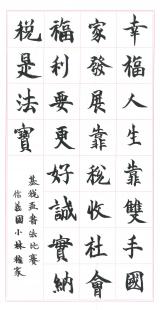 幸福人生靠雙手國
家發展靠稅收社會
福利要更好誠實納
稅是法寶
基稅盃書法比賽
信義國小林家